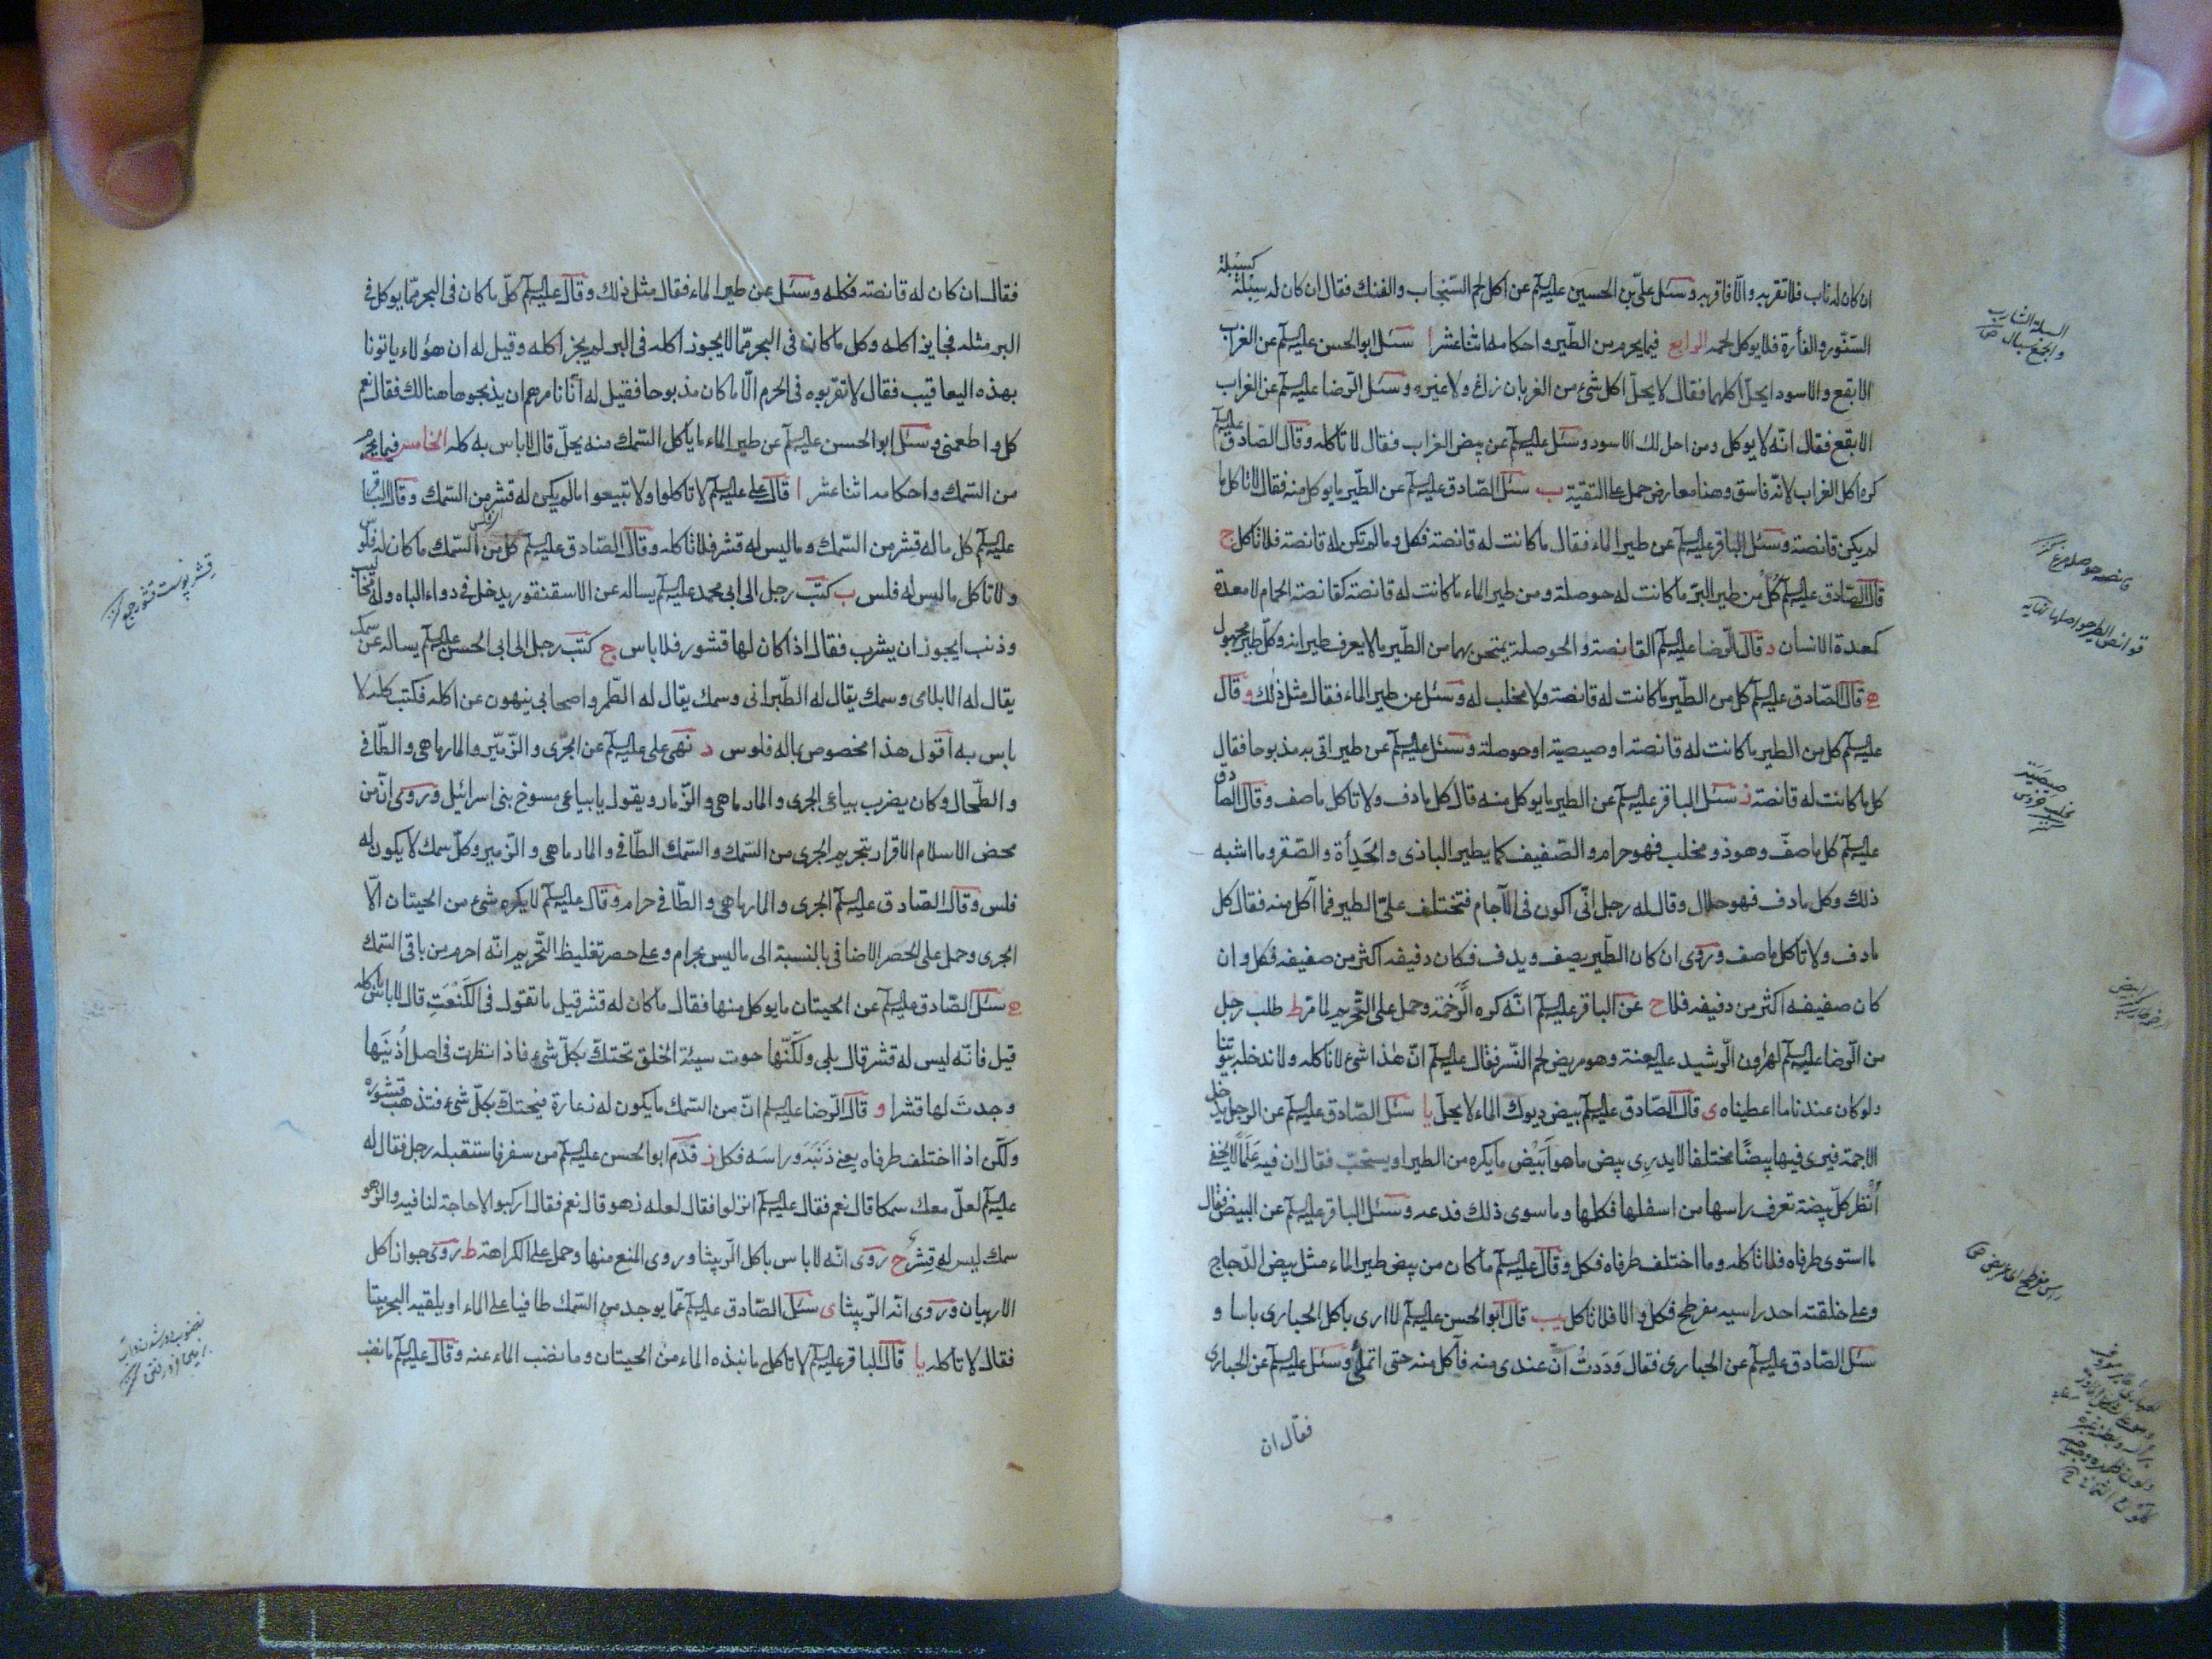 كسبلة
ان كان له ناب فلا تقربه والّا فاقربه وسئل علىّ بن الحسين عليه السلم عن اكل لحم السّنجاب والفنك فقال ان كان له سبلة
السّنّور والفأرة فلا يوكل لحمه الرابع فيما يحرم من الطّير واحكامه اثنا عشر ا سئل ابو الحسن عليه السلم عن الغراب
الابقع والاسود ايحلّ اكلهما فقال لا يحلّ اكل شئ من الغربان زاغ ولا غيره وسئل الرّضا عليه السلم عن الغراب
الابقع فقال انّه لا يوكل ومن احل لك الاسود وسئل عليه السلم عن بيض الغراب فقال لا تاكله وقال الصّادق عليه السلم
كره اكل الغراب لانّه فاسق وهنا معارض حمل على التقيّة ب سئل الصّادق عليه السلم عن الطّير ما يوكل منه فقال لا تاكل ما
لم يكن قانصة وسئل الباقر عليه السلم عن طير الماء فقال ما كانت له قانصة فكل وما لم تكن له قانصة فلا تاكل ج
قال الصّادق عليه السلم كُلْ من طير البرّ ما كانت له حوصلة ومن طير الماء ما كانت له قانصة كقانصة الحمام لا معدة
كمعدة الانسان د قال الرّضا عليه السلم القانصة والحوصلة يمتحن بهما من الطّير ما لا يعرف طيرانه وكلّ طير مجهول
ه قال الصّادق عليه السلم كل من الطّير ما كانت له قانصة ولا مخلب له وسئل عن طير الماء فقال مثل ذلك و قال
عليه السلم كل من الطير ما كانت له قانصة او صيصية او حوصلة وسئل عليه السلم عن طير اتى به مذبوحا فقال
كل ما كانت له قانصة ز سئل الباقر عليه السلم عن الطير ما يوكل منه قال كل ما دف ولا تاكل ما صف وقال الصادق
عليه السلم كل ما صفّ وهو ذو مخلب فهو حرام والصّفيف كما يطير البازى والحِدأة والصّقر وما اشبه
ذلك وكل ما دف فهو حلال وقال له رجل انّى اكون فى الآجام فتختلف علىّ الطير فما آكل منه فقال كل
ما دف ولا تاكل ما صف وروى ان كان الطّير يصف ويدف فكان دفيفه اكثر من صفيفه فكل وان
كان صفيفه اكثر من دفيفه فلا ح عن الباقر عليه السلم انّه كره الرَّخَمَة وحمل على التّحريم لما مرّ ط طلب رجل
من الرّضا عليه السلم لهرون الرّشيد عليه لعنة وهو مريض لحم النّسر فقال عليه السلم انّ هذا شئ لا ناكله ولا ندخله بيوتنا
ولو كان عندنا ما اعطيناه ى قال الصّادق عليه السلم بيض ديوك الماء لا يحلّ يا سئل الصّادق عليه السلم عن الرجل يدخل
الاجمة فيرى فيها بيضًا مختلفا لا يدرى بيض ما هو أبَيْض ما يكره من الطير او يستحبّ فقال ان فيه عَلَمًا لا يخفى
أُنْظر كلّ بيضة تعرف راسها من اسفلها فكلها وما سوى ذلك فدعه وسئل الباقر عليه السلم عن البيض فقال
ما استوى طرفاه فلا تاكله وما اختلف طرفاه فكل وقال عليه السلم ما كان من بيض طير الماء مثل بيض الدّجاج
وعلى خلقته احد راسيه مفرطح فكل والا فلا تاكل يب قال ابو الحسن عليه السلم لا ارى باكل الحبارى باسا و
سئل الصّادق عليه السلم عن الحبارى فقال وَدَدتُ انّ عندى منه فآكل منه حتى اتملّئ وسئل عليه السلم عن الحبارى
فقال ان
السبلة الشارب
والجمع سبال ص
قانصه حوصله مرغ كنز
قوانص الطير حواصلها نهايه
صيصية
مخلب خروس
كنز
راس مفرطح اى عريض ص
فقال ان كان له قانصة فكله وسئل عن طير الماء فقال مثل ذلك وقال عليه السلم كلّ ما كان فى البحر ممّا يوكل فى
البر مثله فجايز اكله وكل ما كان فى البحر ممّا لا يجوز اكله فى البر لم يجز اكله وقيل له ان هؤلاء ياتونا
بهذه اليعاقيب فقال لا تقرّبوه فى الحرم الّا ما كان مذبوحا فقيل له انّا نامرهم ان يذبحوها هنالك فقال نعم
كل واطعمنى وسئل ابو الحسن عليه السلم عن طير الماء ما ياكل السّمك منه يحلّ قال لا باس به كله الخامس فيما يحرم
من السّمك واحكامه اثنا عشر ا قال على عليه السلم لا تاكلوا ولا تبيعوا ما لم يكن له قشر من السّمك وقال الباقر
عليه السلم كل ما له قشر من السّمك وما ليس له قشر فلا تاكله وقال الصّادق عليه السلم كل من السّمك ما كان له فلوس
ولا تاكل ما ليس له فلس ب كتب رجل الى ابى محمد عليه السلم يساله عن الاسقنقور يدخل فى دواء الباه وله مخاليب
وذنب ايجوز ان يشرب فقال اذا كان لها قشور فلا باس ج كتب رجل الى ابى الحسن عليه السلم يساله عن سمك
يقال له الابلامى وسمك يقال له الطّبرانى وسمك يقال له الطّمر واصحابى ينهون عن اكله فكتب كله لا
باس به اقول هذا مخصوص بما له فلوس د نهى على عليه السلم عن الجرى والزّمّير والمارماهى والطّافى
والطّحال وكان يضرب بياعى الجرى والمارماهى والزّمار ويقول يا بياعى مسوخ بنى اسرائيل وروى انّ من
محض الاسلام الاقرار بتحريم الجرى من السّمك والسّمك الطّافى والمارماهى والزّمير وكلّ سمك لا يكون له
فلس وقال الصّادق عليه السلم الجرى والمارماهى والطّافى حرام وقال عليه السلم لا يكره شئ من الحيتان الّا
الجرى وحمل على الحصر الاضافى بالنسبة الى ما ليس بحرام وعلى حصر تغليظ التّحريم انّه احرم من باقى السّمك
ه سئل الصّادق عليه السلم عن الحيتان ما يوكل منها فقال ما كان له قشر قيل ما تقول فى الكَنْعَتِ قال لا باس باكله
قيل فانّه ليس له قشر قال بلى ولكنّها حوت سيئة الخلق تحتكّ بكلّ شئ فاذا نظرت فى اصل اُذُنَيها
وجدتَ لها قشرا و قال الرّضا عليه السلم انّ من السّمك ما يكون له زعارة فيحتكّ بكلّ شئ فتذهب قشوره
ولكن اذا اختلف طرفاه يعنى ذَنَبَه وراسَه فكل ز قدم ابو الحسن عليه السلم من سفر فاستقبله رجل فقال له
عليه السلم لعلّ معك سمكا قال نعم فقال عليه السلم انزلوا فقال لعله زهو قال نعم فقال اركبوا لا حاجة لنا فيه والزهو
سمك ليس له قشر ح روى انّه لا باس باكل الرّبيثا وروى المنع منها وحمل على الكراهة ط روى جواز اكل
الاربيان وروى انّه الرّبيثا ى سئل الصّادق عليه السلم عمّا يوجد من السّمك طافيا على الماء او يلقيه البحر ميتا
فقال لا تاكله يا قال الباقر عليه السلم لا تاكل ما نبذه الماء من الحيتان وما نضب الماء عنه وقال عليه السلم ما نضب
قشر پوست قشور جمع كنز